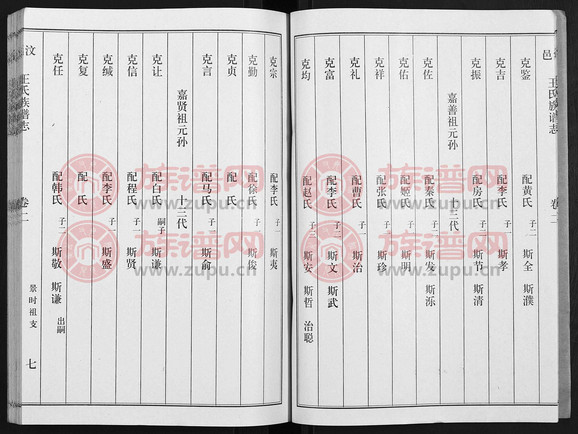 邑
王氏族谱志
卷二
克鉴 配黄氏 子二 斯全 斯濮
克吉 配李氏 子一 斯孝
克振 配房氏 子二 斯节 斯清
嘉善祖元孙 十三代
克佐 配秦氏 子二 斯发 斯泺
克佑 配姬氏 子一 斯明
克祥 配张氏 子一 斯珍
克礼 配曹氏 子一 斯治
克富 配李氏 子二 斯文 斯武
克均 配赵氏 子三 斯安 斯哲 治聪
克宗 配李氏 子一 斯夷
克勤 配徐氏 子一 斯俊
克贞 配 氏
克言 配马氏 子一 斯俞
嘉贤祖元孙 十三代
克让 配白氏 嗣子 斯谦
克信 配程氏 子一 斯贤
克缄 配李氏 子一 斯盛
克复 配 氏
克任 配韩氏 子二 斯敬 斯谦 出嗣
汶
王氏族谱志
卷二
景时祖支
七
族谱网
www.zupu.cn
族谱网
www.zupu.cn